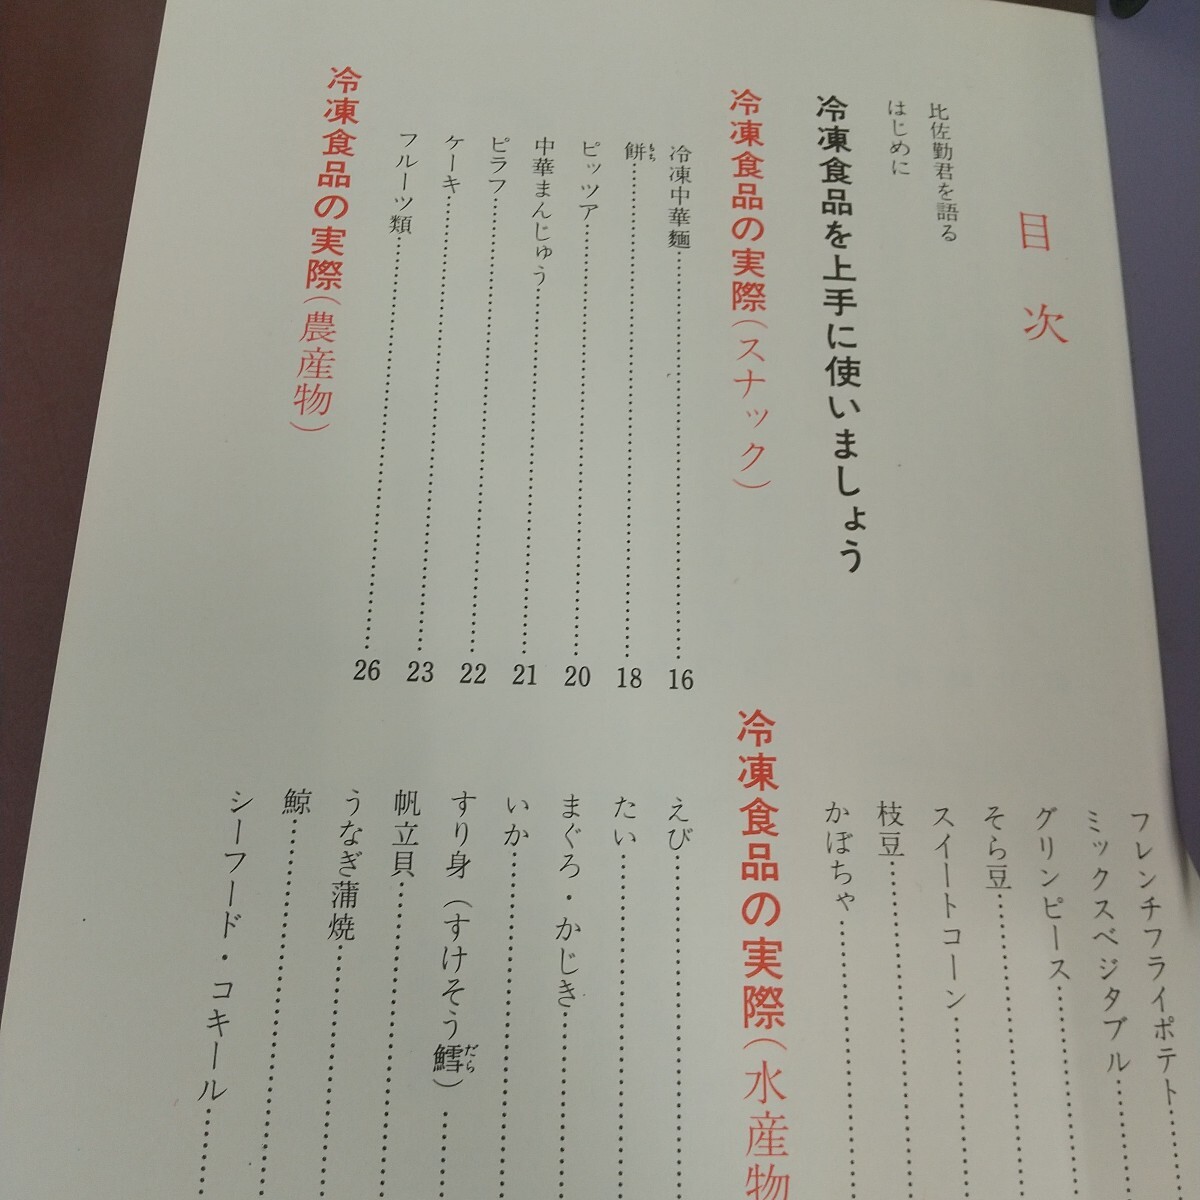 目次
比佐勤君を語る
はじめに
冷凍食品を上手に使いましょう
冷凍食品の実際(スナック)
冷凍中華麵……16
餅もち……18
ピッツア……20
中華まんじゅう……21
ピラフ……22
ケーキ……23
フルーツ類……26
冷凍食品の実際(農産物)
フレンチフライポテト……
ミックスベジタブル……
グリンピース……
そら豆……
スイートコーン……
枝豆……
かぼちゃ……
冷凍食品の実際(水産物
えび……
たい……
まぐろ・かじき……
いか……
すり身(すけそう鱈だら)……
帆立貝……
うなぎ蒲焼……
鯨……
シーフード・コキール……